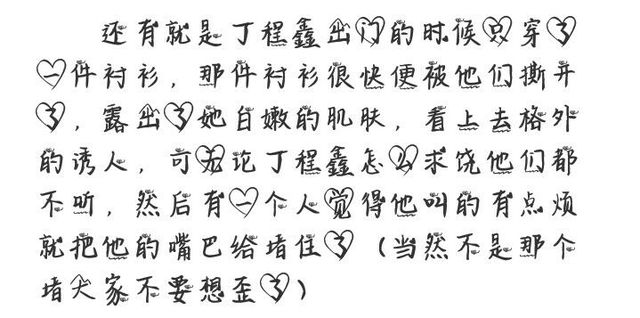 还有就是丁程鑫出门的时候只穿了
一件衬衫，那件衬衫很快便被他们撕开
了，露出了她白嫩的肌肤，看上去格外
的诱人，可无论丁程鑫怎么求饶他们都
不听，然后有一个人觉得他叫的有点烦
就把他的嘴巴给堵住了（当然不是那个
堵大家不要想歪了）